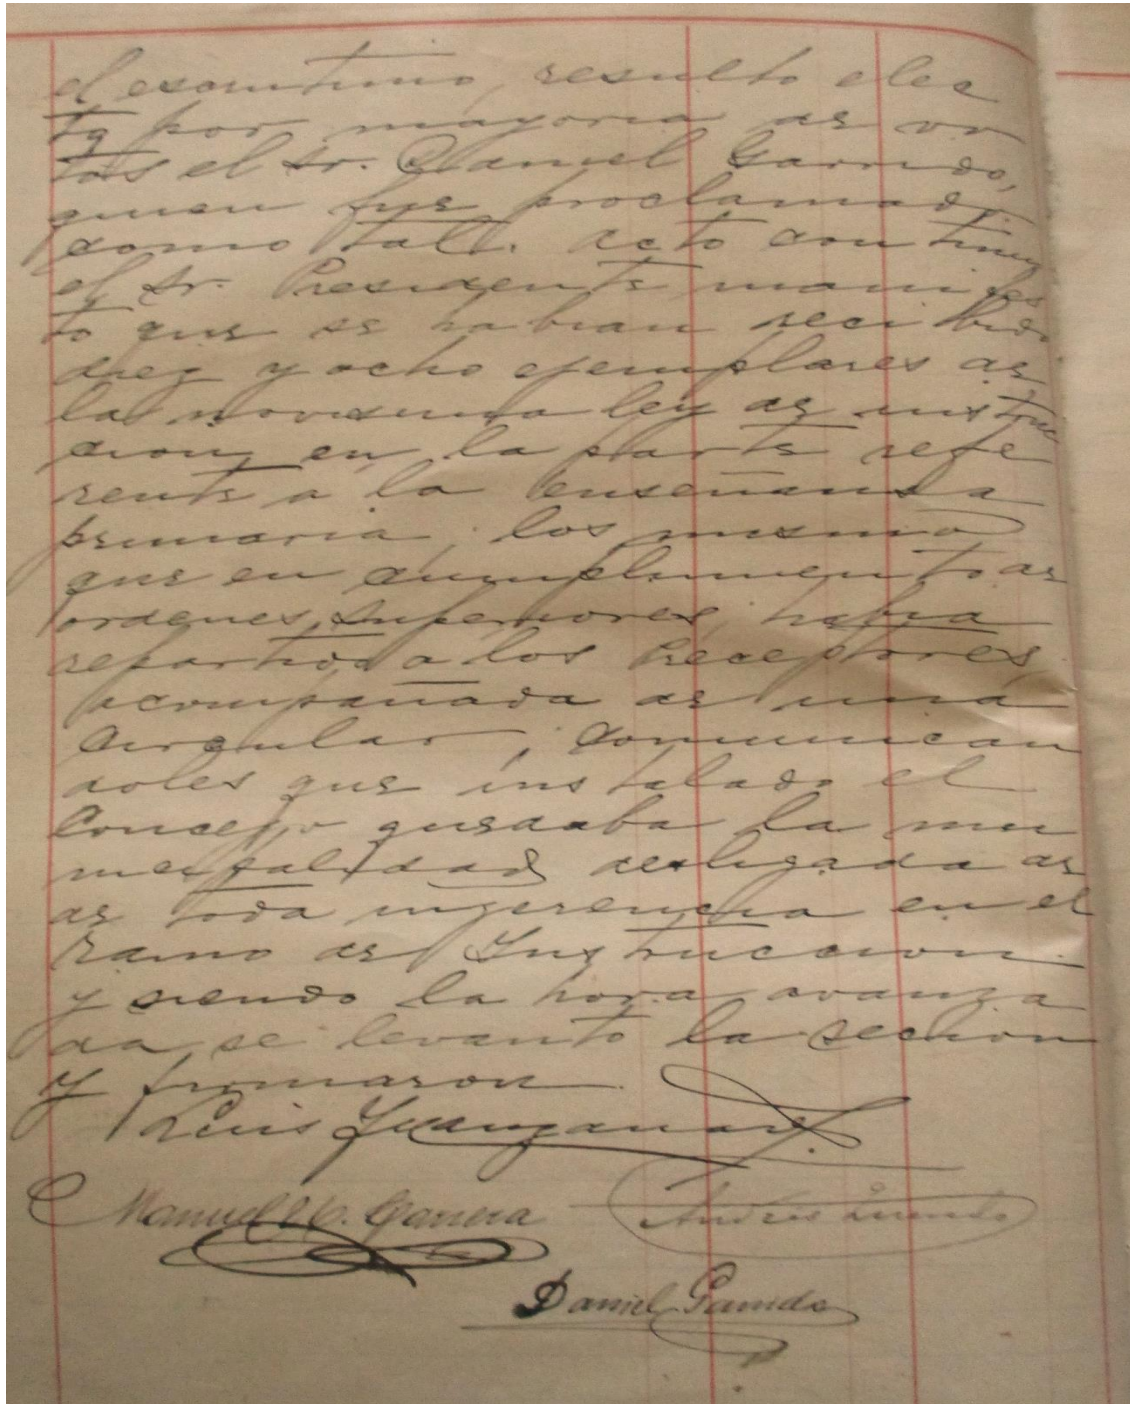 el escrutinio, resulto elec
to por mayoria de vo
tos el Sr. Daniel Garrido,
quien fue proclamado
como tall. Acto continuo
el Sr. Presidente manifes
to que se habian recibido
diez y ocho ejemplares de
la novisima ley de instruc
cion, en la parte refe
rente a la enseñansa
primaria, los mismo
que en cumplimiento de
ordenes superiores, habia
repartido a los Preceptores,
acompañada de una
Circular, comunican
doles que instalado el
Concejo quedaba la mu
nicipalidad desligada de
de toda ingerencia en el
ramo de Instruccion.
y siendo la hora avanza
da, se levanto la secion
y firmaron.
Luis
Manuel H. Garrera
Andrés
Daniel Garrido